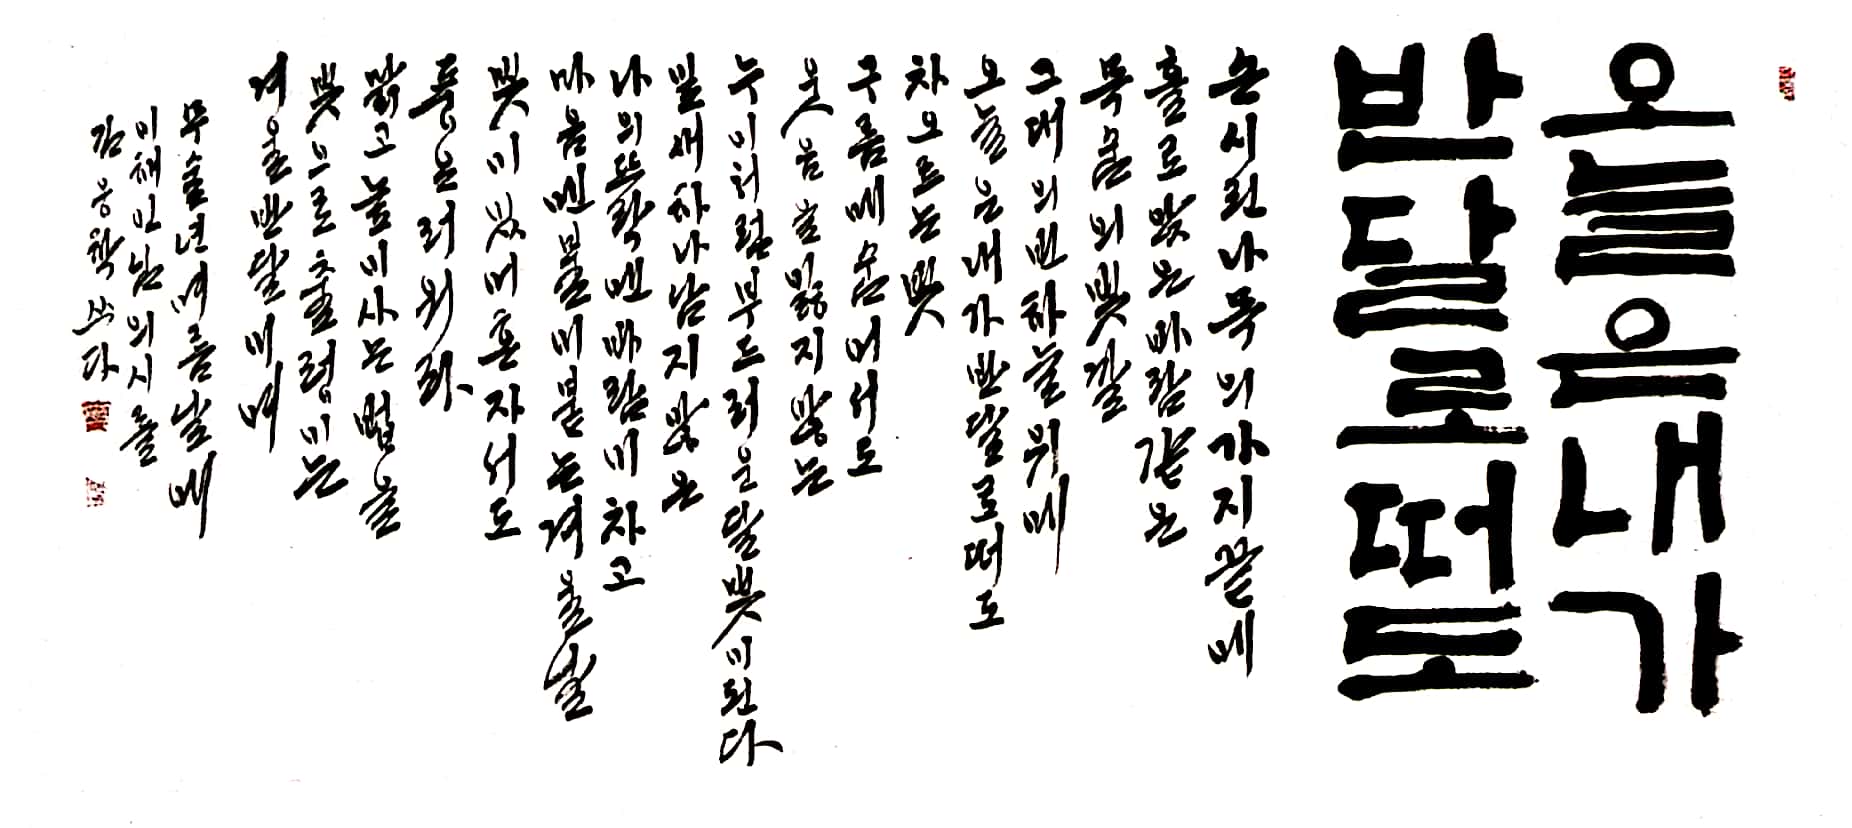 오늘은내가
반달로떠도
손시린나목의가지끝에
홀로앉은바람같은
목숨의빛깔
그대의빈하늘위에
오늘은내가반달로떠도
차오르는빛
구름에숨어서도
웃음을잃지않는
누이처럼부드러운달빛이된다
잎새하나남지않은
나의뜨락엔바람이차고
마음엔불이붙는겨울날
빛이있어혼자서도
풍요러워라
맑고높이사는법을
빛으로출렁이는
겨울반달이여
무술년여름날에
이해인님의시를
김웅학쓰다